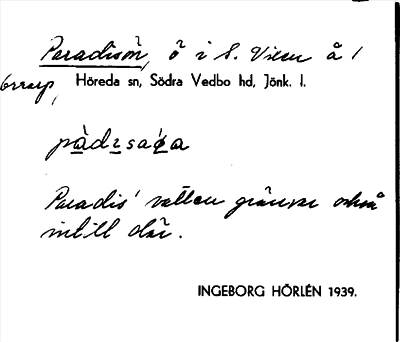 Paradisön, ö i S. Vixen å /
Orrarp,
Höreda sn, Södra Vedbo hd, Jönk. l.
Paradis' vatten gränsar också
intill där.
INGEBORG HÖRLÉN 1939.